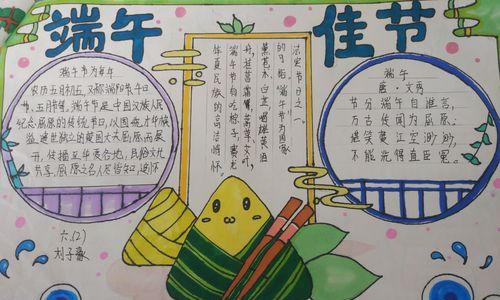 端午佳节
端午节为每年
农历五月初五，又称端阳节、午日
节、五月节等，端午节是中国汉族人民
纪念屈原的传统节日，以围绕才华横
溢、遗世独立的楚国大夫屈原而展
开，传播至华夏各地，民俗文化
共享，屈原之名人尽皆知，追怀
法定节日之一
端午节有吃粽子，赛龙
华夏民族的高洁情怀。
端午
唐·文秀
节分端午自谁言，
万古传闻为屈原；
堪笑楚江空渺渺，
不能洗得直臣冤。
六（2）